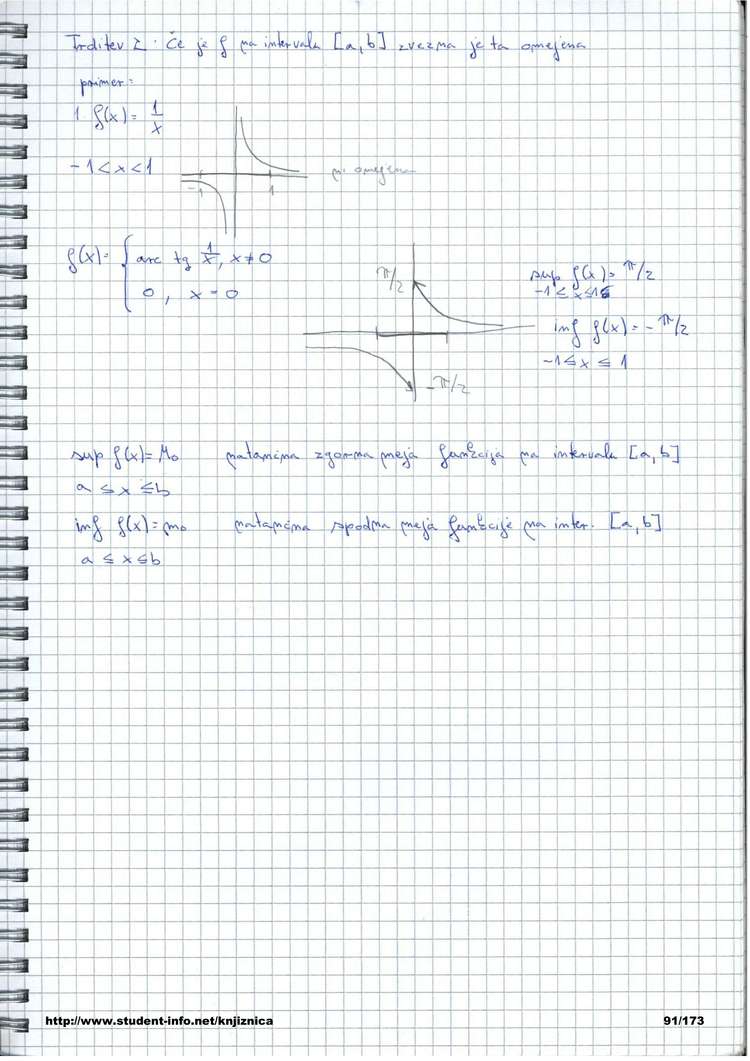 Trditev 2: Če je f na intervalu [a, b] zvezna je ta omejena
primer:
1 f(x) = 1/x
-1 < x < 1
-1 1
ni omejena
f(x) = { arc tg 1/x, x ≠ 0
0, x = 0
π/2
-π/2
sup f(x) = π/2
-1 ≤ x ≤ 1
inf f(x) = -π/2
-1 ≤ x ≤ 1
sup f(x) = M₀ natančna zgorna meja funkcija na intervalu [a, b]
a ≤ x ≤ b
inf f(x) = m₀ natančna spodna meja funkcije na inter. [a, b]
a ≤ x ≤ b
http://www.student-info.net/knjiznica 91/173